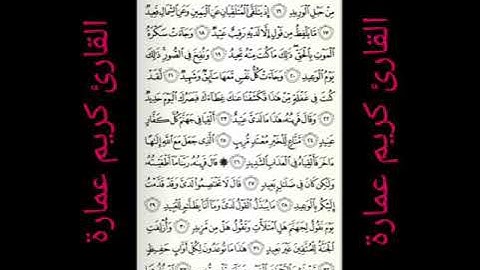 القارئ كريم عمارة
مِنْ حَبْلِ ٱلْوَرِيدِ ١٦ إِذْ يَتَلَقَّى ٱلْمُتَلَقِّيَانِ عَنِ ٱلْيَمِينِ وَعَنِ ٱلشِّمَالِ قَعِيدٌ
١٧ مَّا يَلْفِظُ مِن قَوْلٍ إِلَّا لَدَيْهِ رَقِيبٌ عَتِيدٌ ١٨ وَجَآءَتْ سَكْرَةُ
ٱلْمَوْتِ بِٱلْحَقِّ ذَٰلِكَ مَا كُنتَ مِنْهُ تَحِيدُ ١٩ وَنُفِخَ فِى ٱلصُّورِ ذَٰلِكَ
يَوْمُ ٱلْوَعِيدِ ٢٠ وَجَآءَتْ كُلُّ نَفْسٍ مَّعَهَا سَآئِقٌ وَشَهِيدٌ ٢١ لَّقَدْ
كُنتَ فِى غَفْلَةٍ مِّنْ هَٰذَا فَكَشَفْنَا عَنكَ غِطَآءَكَ فَبَصَرُكَ ٱلْيَوْمَ حَدِيدٌ
٢٢ وَقَالَ قَرِينُهُۥ هَٰذَا مَا لَدَىَّ عَتِيدٌ ٢٣ أَلْقِيَا فِى جَهَنَّمَ كُلَّ كَفَّارٍ
عَنِيدٍ ٢٤ مَّنَّاعٍ لِّلْخَيْرِ مُعْتَدٍ مُّرِيبٍ ٢٥ ٱلَّذِى جَعَلَ مَعَ ٱللَّهِ إِلَٰهًا
ءَاخَرَ فَأَلْقِيَاهُ فِى ٱلْعَذَابِ ٱلشَّدِيدِ ٢٦ ۞ قَالَ قَرِينُهُۥ رَبَّنَا مَآ أَطْغَيْتُهُۥ
وَلَٰكِن كَانَ فِى ضَلَٰلٍ بَعِيدٍ ٢٧ قَالَ لَا تَخْتَصِمُوا۟ لَدَىَّ وَقَدْ قَدَّمْتُ
إِلَيْكُم بِٱلْوَعِيدِ ٢٨ مَا يُبَدَّلُ ٱلْقَوْلُ لَدَىَّ وَمَآ أَنَا۠ بِظَلَّٰمٍ لِّلْعَبِيدِ ٢٩
يَوْمَ نَقُولُ لِجَهَنَّمَ هَلِ ٱمْتَلَأْتِ وَتَقُولُ هَلْ مِن مَّزِيدٍ ٣٠ وَأُزْلِفَتِ
ٱلْجَنَّةُ لِلْمُتَّقِينَ غَيْرَ بَعِيدٍ ٣١ هَٰذَا مَا تُوعَدُونَ لِكُلِّ أَوَّابٍ حَفِيظٍ
القارئ كريم عمارة